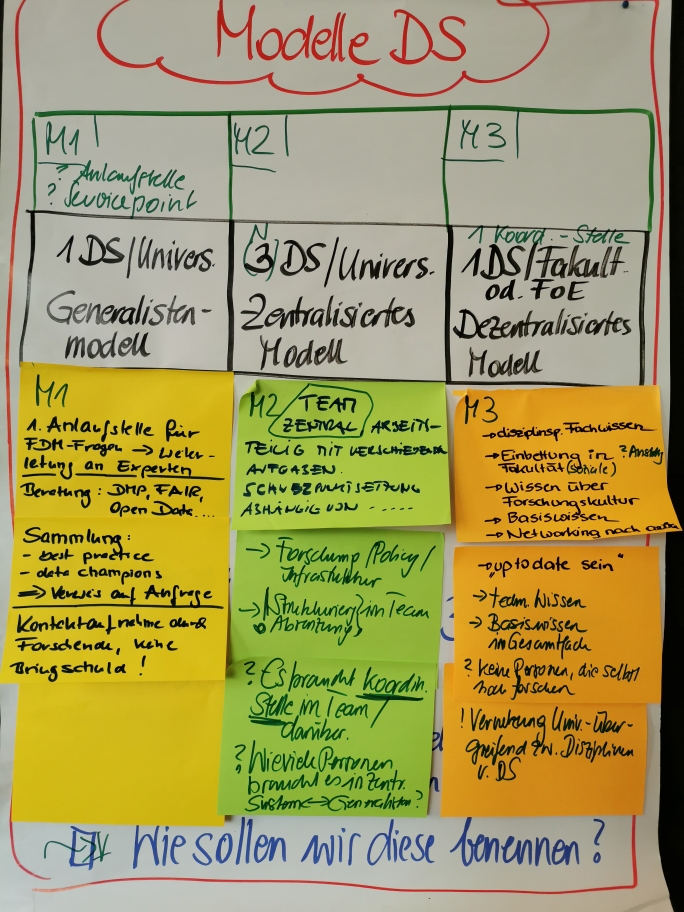 Modelle DS
M1
? Anlaufstelle
? Servicepoint
M2
M3
1 DS/Univers.
Generalisten-
modell
N
(3) DS/Univers.
Zentralisiertes
Modell
1 Koord.-Stelle
1 DS/Fakult.
od. FoE
Dezentralisiertes
Modell
M1
1. Anlaufstelle für
FDM-Fragen → Weiter-
leitung an Experten
Beratung: DMP, FAIR,
Open Data....
Sammlung:
- best practice
- data champions
⇒ Verweis auf Anfrage
Kontaktaufnahme durch
Forschende, keine
Bringschuld!
M2 TEAM
ZENTRAL ARBEITS-
TEILIG MIT VERSCHIEDENEN
AUFGABEN.
SCHWERPUNKTSETZUNG
ABHÄNGIG VON .....
→ Forschung/Policy/
Infrastruktur
→ im Team
? Es braucht Koordin.
Stelle im Team/
darüber.
? Wieviele Personen
braucht es in Zentr.
System ↔ Generalisten?
M3
→ disziplinsp. Fachwissen
→ Einbettung in
Fakultät (soziale)
→ Wissen über
Forschungskultur
→ Basiswissen
→ Networking nach
→ "up to date sein"
→ team. Wissen
→ Basiswissen
im Gesamtfach
? keine Personen, die selbst
noch forschen
! Vernetzung Univ.-über-
greifend zw. Disziplinen
u. DS
Wie sollen wir diese benennen?